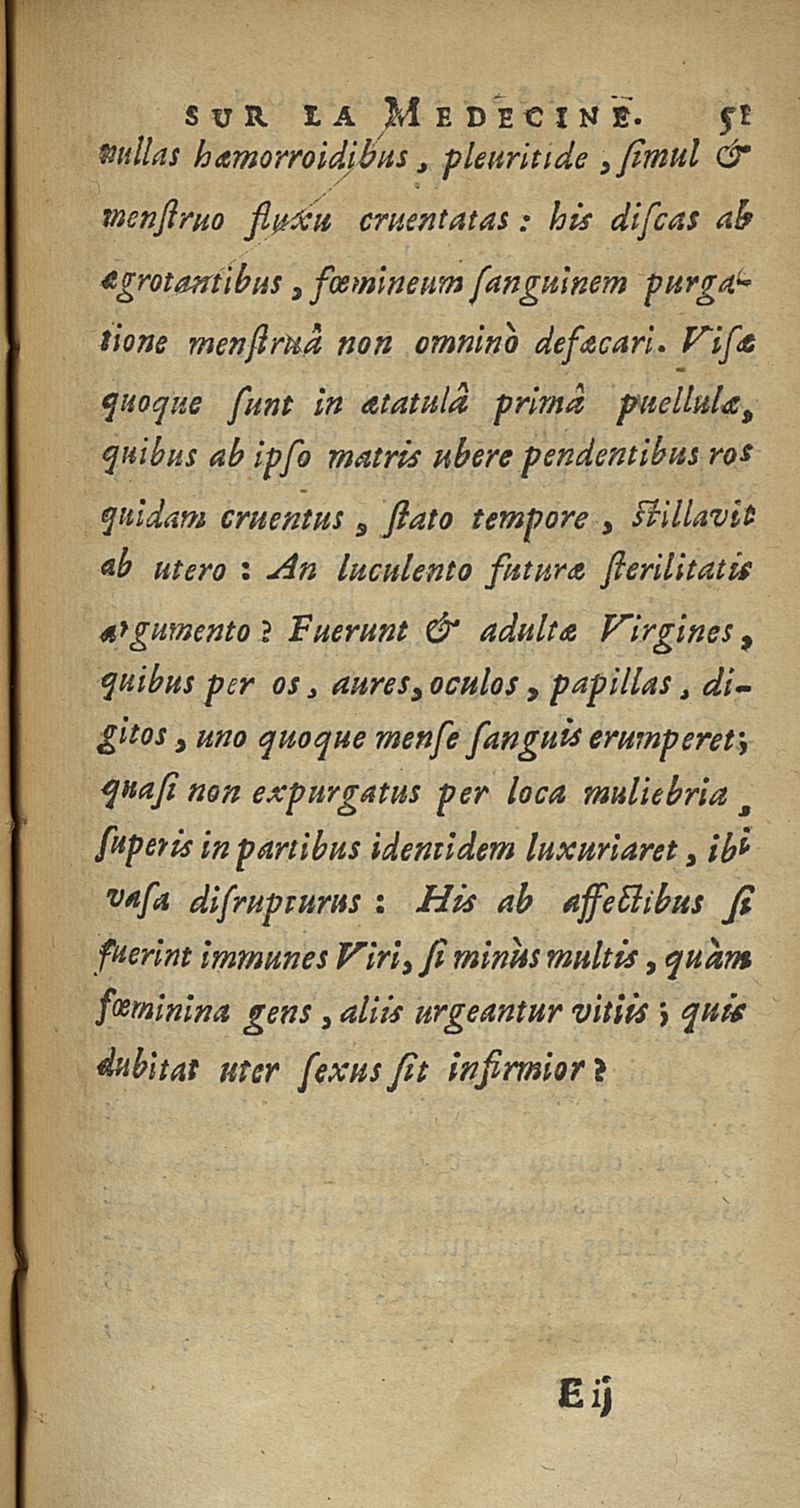 SUR LA MEDECINE. 51
nullas hæmorroidibus, pleuritide, ſimul &
menſtruo fluxu cruentatas : his diſcas ab
ægrotantibus, fœmineum ſanguinem purga-
tione menſtruâ non omninò defæcari. Viſæ
quoque ſunt in ætatulâ primâ puellulæ,
quibus ab ipſo matris ubere pendentibus ros
quidam cruentus, ſtato tempore, ſtillavit
ab utero : An luculento futuræ ſterilitatis
argumento ? Fuerunt & adultæ Virgines,
quibus per os, aures, oculos, papillas, di-
gitos, uno quoque menſe ſanguis erumperet;
quaſi non expurgatus per loca muliebria,
ſuperis in partibus identidem luxuriaret, ibi
vaſa diſrupturus : His ab affectibus ſi
fuerint immunes Viri, ſi minùs multis, quàm
fœminina gens, aliis urgeantur vitiis ; quis
dubitat uter ſexus ſit infirmior ?
E ij